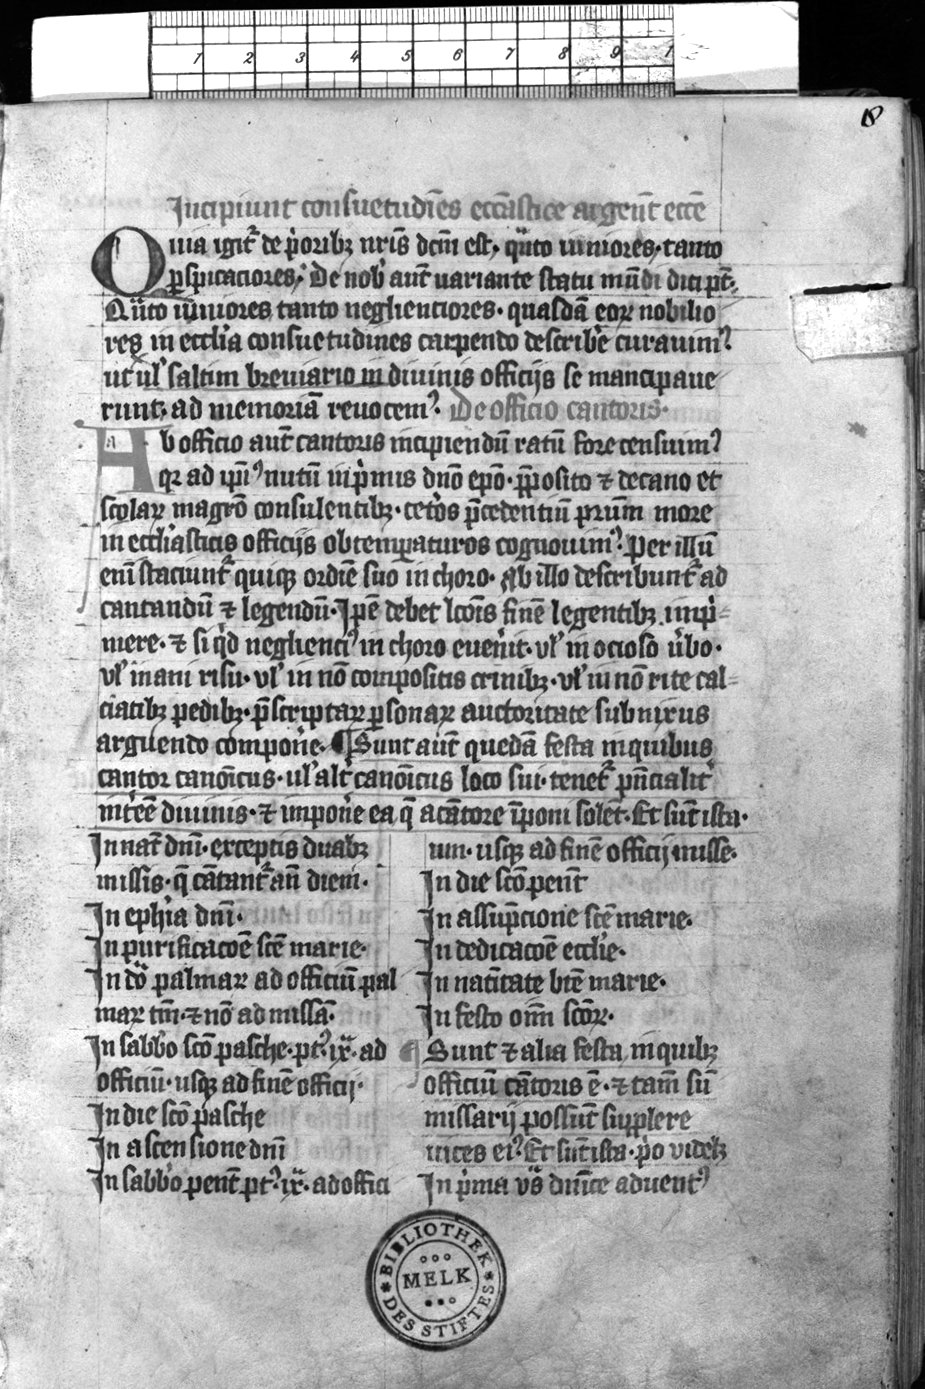 1 2 3 4 5 6 7 8 9 1
18
Incipiunt consuetudīes eccāstice argenт̄ eccē
Quia igit᷑ de p̍orib₃ nr̄is dcm̄ est, qͣnto iuniores, tanto
ꝑspicaciores, De nob̍ aut̄ uariante statu mūdi dici pt̄,
Qͣnto iuniores tanto neglienciores· quasdā eoꝝ nobilio
res in eccl̍ia consuetudines carpendo describe̍ curauim᷒
ut ul̍ saltim breuiario in diuinis officijs se mancipaue
runt, ad memoriā reuocem᷒. De officio cantoris·
Ab officio aut̄ cantoris incipiendū ratū fore censuim᷒
qꝛ ad ip̄i᷒ nutū inp̍mis dn̄o ep̄o· p̄posito ⁊ decano et
scolaꝝ magr̄o consulentib₃· cet̍os p̄cedentiū pr̄um more
in eccl̍iasticis officijs obtemꝑaturos cognouim᷒. Per illū
eni̅ staciunt᷑ quiqꝫ ordīe suo in choro· Ab illo describunt᷑ ad
cantandū ⁊ legendū· Ip̄e debet lc̄ois finē legentib₃ imp̍⸗
mere· ⁊ si qͥd neglienci᷒ in choro euen̍it· ul̍ in ocioso u̍bo·
ul̍ inani risu· ul̍ in nō compositis crinib₃· ul̍ in nō rite cal⸗
ciatib₃ pedib₃· p̄scriptaꝝ ꝑsonaꝝ auctoritate subnixus
arguendo compone̍· ¶ Sunt aut̄ quedā festa in quibus
cantor canōicus· ul̍ alt̍ canōicus loco sui· tenet᷑ pn̄cialit̍
int̍eē diuinis· ⁊ impone̍ ea q̄ a cātore īponi solēt· Et sūt ista·
In nat̄ dn̄i· exceptis duab₃
missis· q̄ cātant᷑ an̄ diem·
In eph̍ia dn̄i·
In purificacōe sc̄e marie·
In dō palmaꝝ ad officiū pal
maꝝ tm̄· ⁊ nō ad missā·
In sabb̍o sc̄o pasche· pt᷒ ix· ad
officiū· usqꝫ ad finē officij·
In die sc̄o pasche
In ascensione dn̄i
In sabb̍o penт̄ pt᷒ ix· ad offici
um· usqꝫ ad finē officij misse·
In die sc̄o penт̄
In assup̄cione sc̄e marie·
In dedicacōe eccl̍ie·
In natītate bt̄e marie·
In festo om̄ scōꝝ·
¶ Sunt ⁊ alia festa in quib₃
officiū cātoris ē· ⁊ tam̄ sū
missarij possūt supplere
uices ei᷒. Et sūt ista· p̍o videl₃
In p̍ma us̄ dn̄ice aduent᷒
BIBLIOTHEK
MELK
DES STIFTES